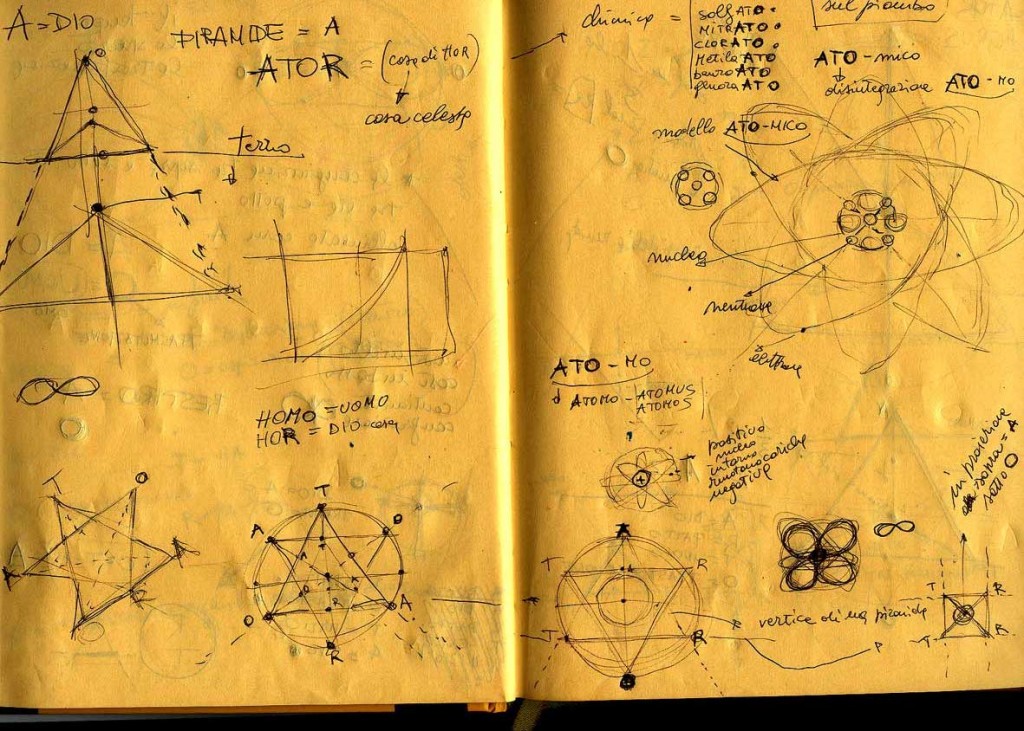 A = DIO
PIRAMIDE = A
ATOR = (casa di HOR)
cosa celeste
O
HOMO = UOMO
HOR = DIO
T
O
A
R
T
A
O
T
O
R
A
R
chimico =
solfATO
NITRATO
CLORATO
MetilATO
ATO
ATO
sul piombo
ATO-mico
disintegrazione
ATO-MO
modello ATO-MICO
nucleo
neutrone
elettrone
ATO-MO
ATOMO - ATOMUS
ATOMOS
positivo
nucleo
intorno
ruotano cariche
negative
in proiezione
sopra = A
sotto O
A
T
R
T
R
vertice di una piramide
T
R
R